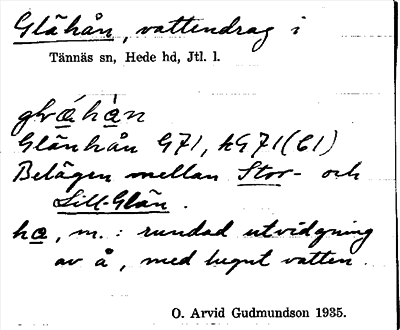 Glåhån, vattendrag i
Tännäs sn, Hede hd, Jtl. l.
Glånhån G71, hG71(61)
Belägen mellan Stor- och
Lill-Glån.
ha, m.: rundad utvidgning
av å, med lugnt vatten.
O. Arvid Gudmundson 1935.